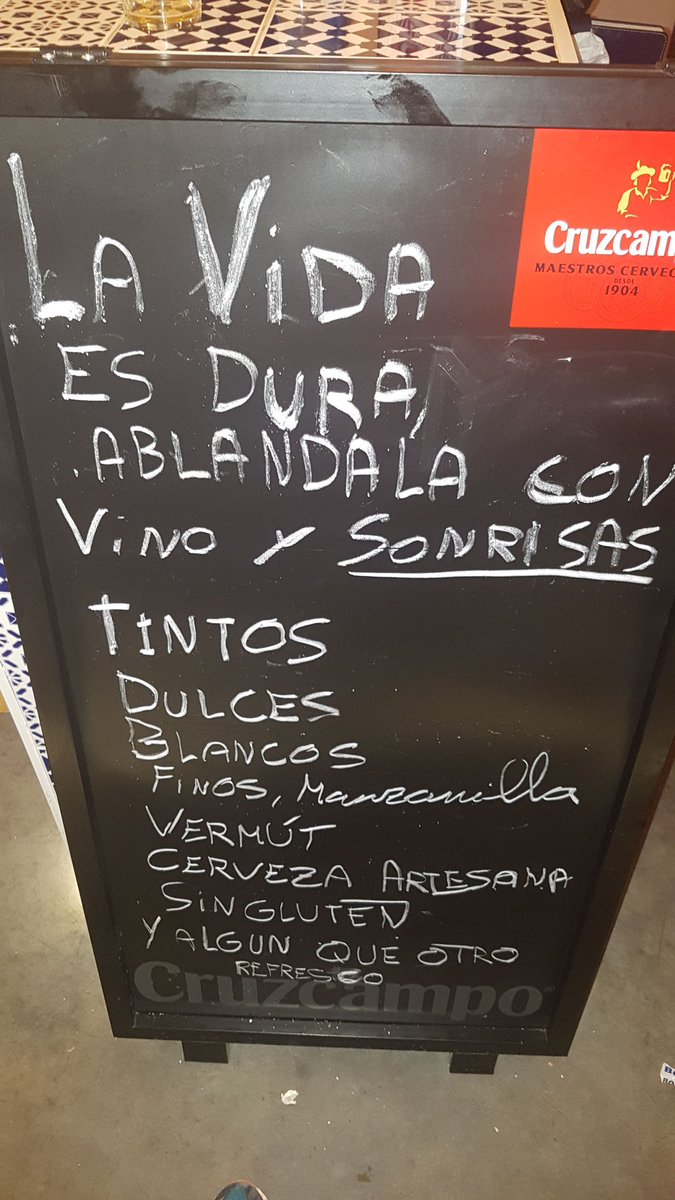 Cruzcam
MAESTROS CERVEC
DESDE
1904
LA ViDA
ES DURA,
ABLANDALA CON
ViNO Y SONRISAS
TINTOS
DULCES
BLANCOS
FINOS, Manzanilla
VERMÚT
CERVEZA ARTESANA
SIN GLUTEN
Y ALGUN QUE OTRO
REFRESCO
Cruzcampo